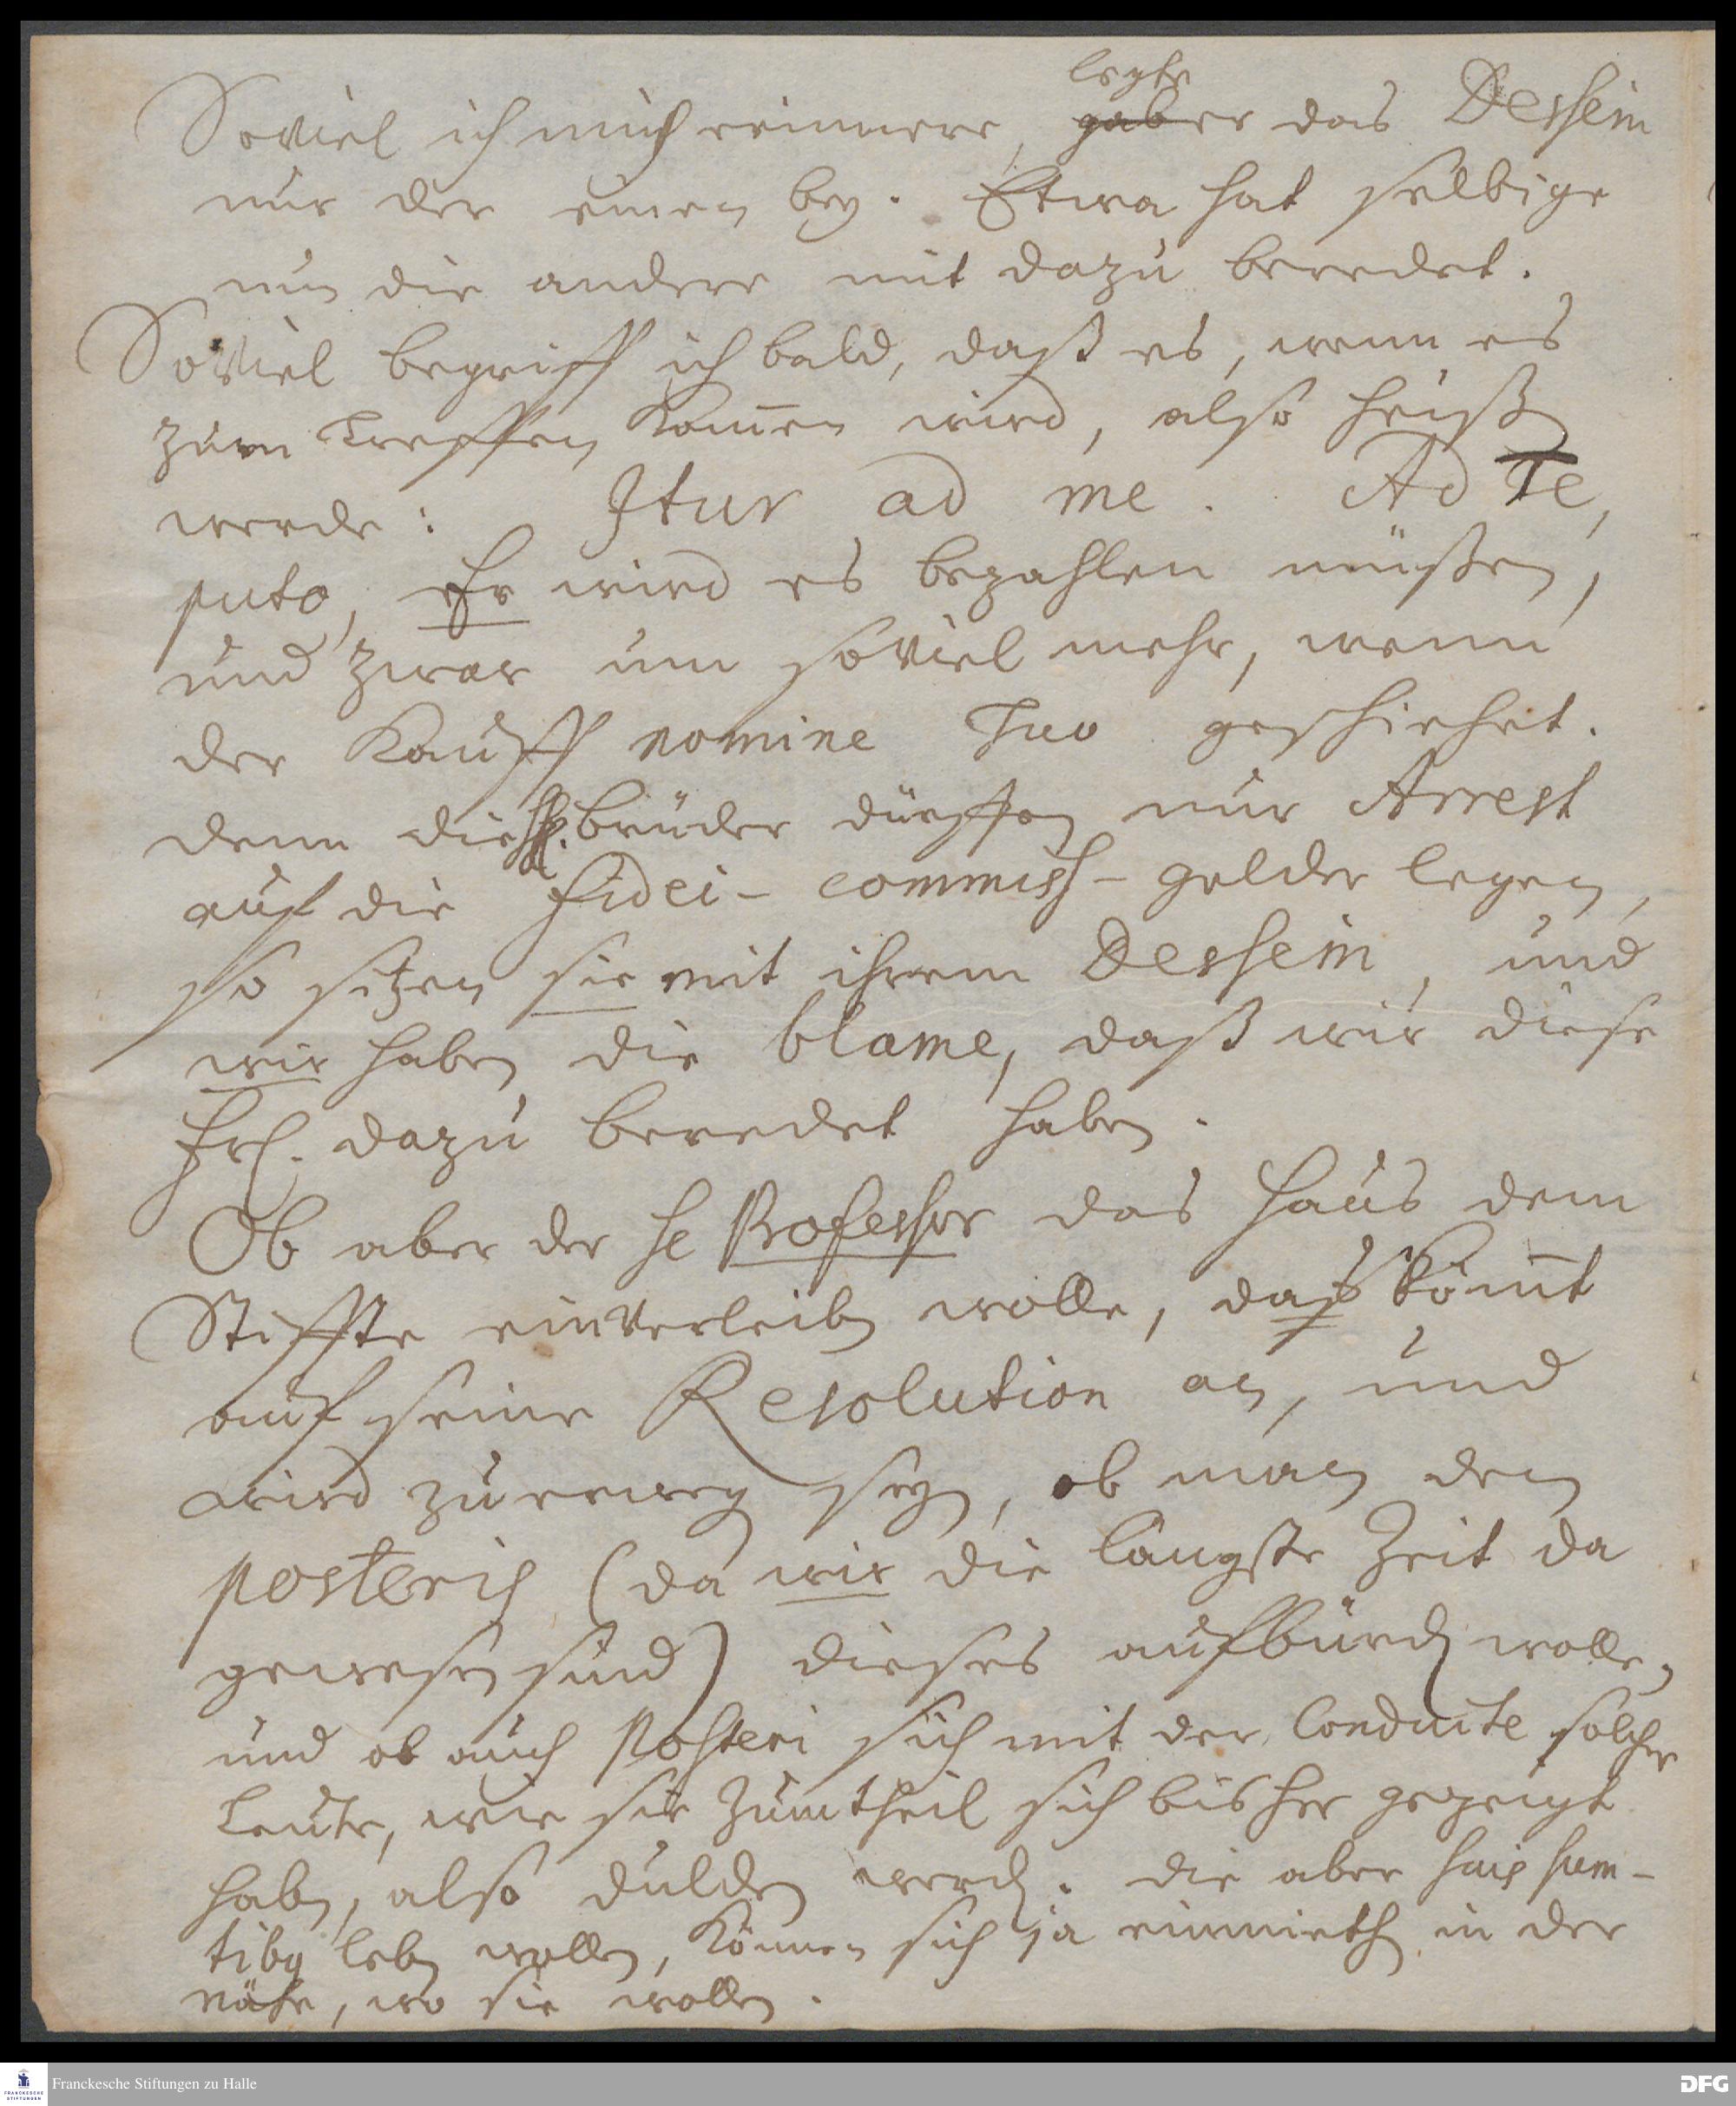 legte
Soviel ich mich erinnere, gab er das Dessein
nur der einen bey. Etwa hat selbige
nun die andere mit dazu beredet.
Soviel begriff ich bald, daß es, wenn es
zum Treffen kom̅en wird, also heißen
werde: Itur ad me. Ad Te,
puto, Er wird es bezahlen müßen,
und zwar um soviel mehr, wenn
der Kauff nomine Tuo geschiehet.
denn die HH. brüder dürffen nur Arrest
auf die Fidei-commiss-gelder legen,
so sitzen sie mit ihrem Dessein, und
wir haben die blame, daß wir diese
Frl. dazu beredet haben.
Ob aber der He Professor das Hauß dem
Stiffte einverleiben wolle, daß köm̅t
auf seine Resolution an, und
wird zu erwegen seyn, ob man den
posteris (da wir die längste Zeit da
gewesen sind) dieses aufbürden wolle,
und ob auch Posteri sich mit der Conduite solcher
Leute, wie sie zum theil sich bisher gezeigt
haben, also dulden werden. die aber suis sum-
tibus leben wollen, können sich ja einmiethen in der
nähe, wo sie wollen.
Franckesche Stiftungen zu Halle
FRANCKESCHE
STIFTUNGEN
DFG